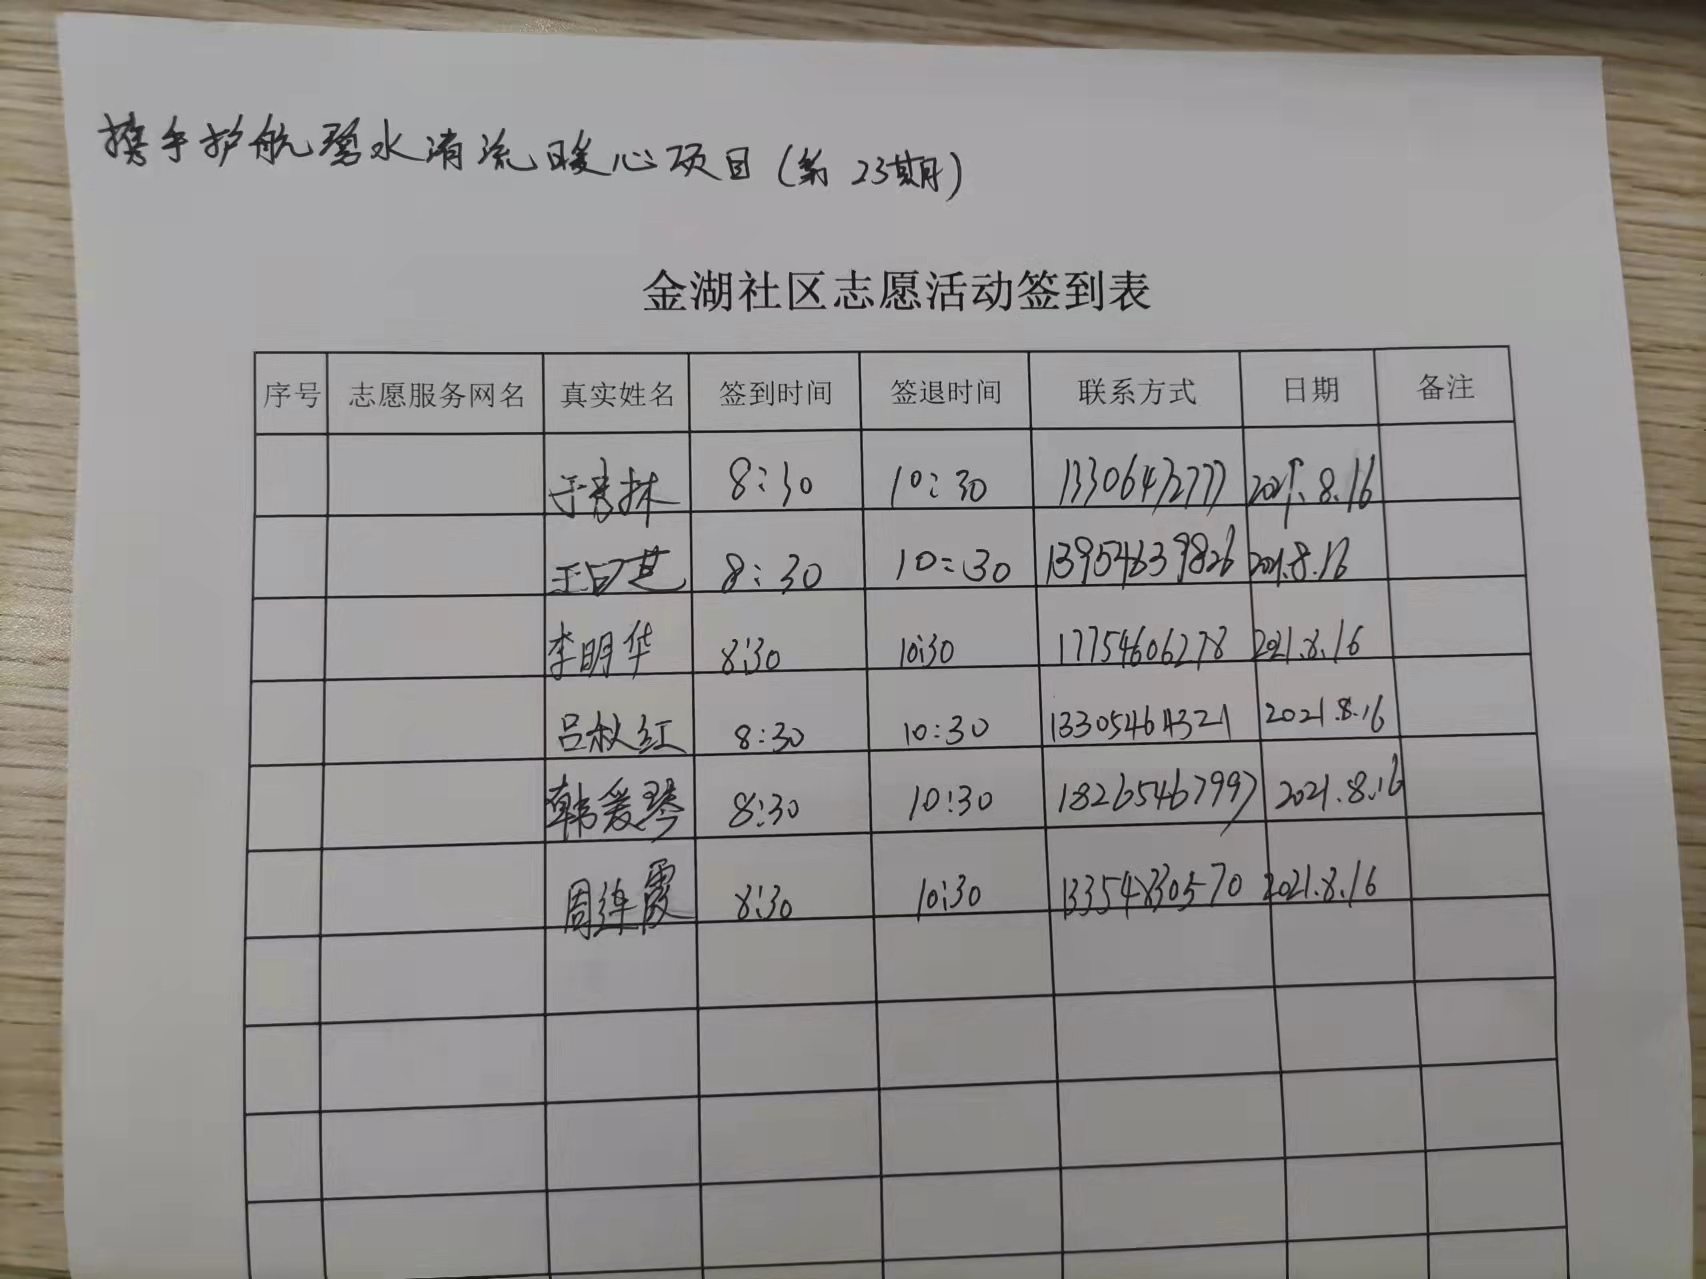 携手护航碧水清流暖心项目(第23期)
金湖社区志愿活动签到表
序号 志愿服务网名 真实姓名 签到时间 签退时间 联系方式 日期 备注
8:30 10:30 13306432777 2021.8.16
8:30 10:30 13954639826 2021.8.16
李明华 8:30 10:30 17754606278 2021.8.16
吕秋红 8:30 10:30 13305464321 2021.8.16
韩爱琴 8:30 10:30 18265467997 2021.8.16
周连霞 8:30 10:30 13354830570 2021.8.16